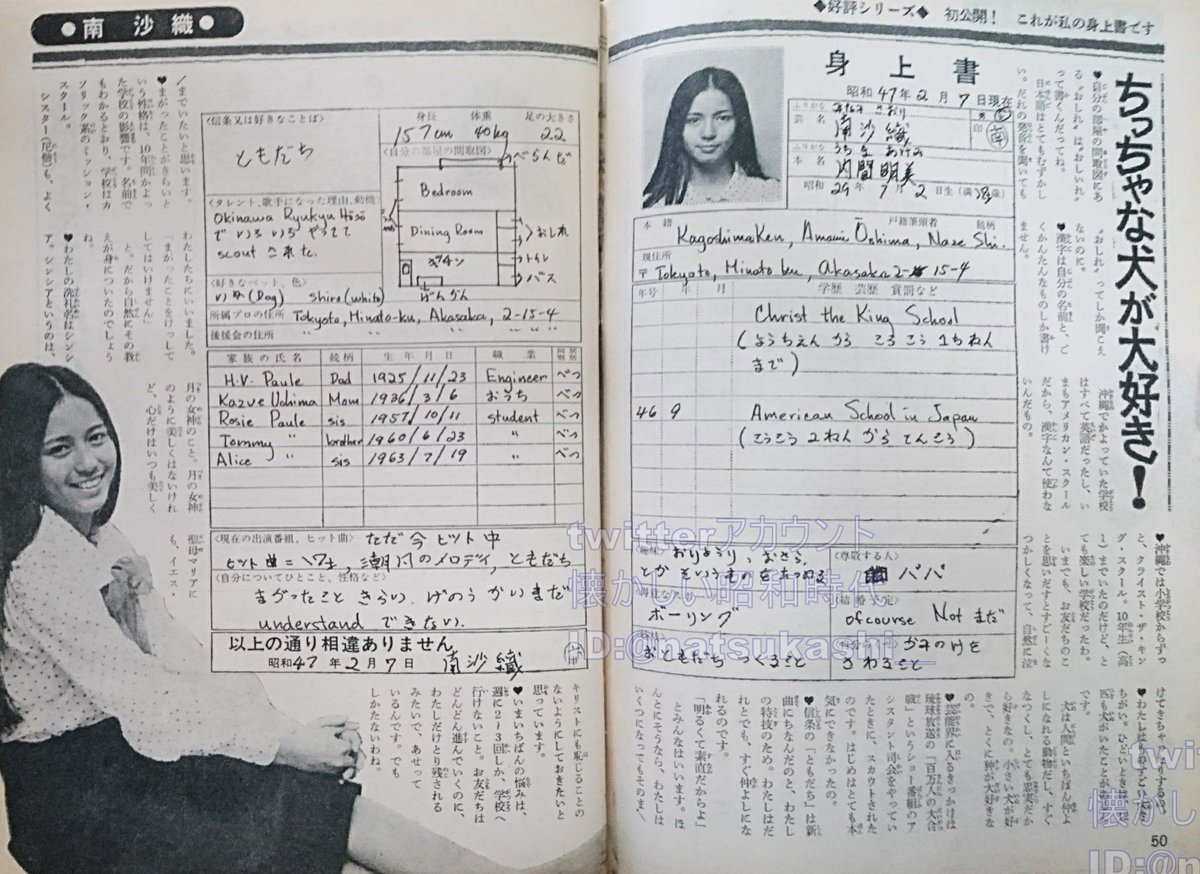 ◆好評シリーズ◆ 初公開! これが私の身上書です
ちっちゃな犬が大好き!
身上書
昭和47年2月7日現在
ふりがな みなみ さおり
芸名 南沙織
印 南
ふりがな うちま あけみ
本名 内間明美
昭和29年7月2日生(満
本籍 戸籍筆頭者 続柄
Kagoshima Ken, Amami Ōshima, Naze Shi.
現住所
〒Tokyoto, Minato ku, Akasaka 2-15-4
年号 年 月 学歴 芸歴 賞罰など
Christ the King School
(ようちえん から こうこう 1ちねん
まで)
46 9 American School in Japan
(こうこう 2ねん から てんこう)
おりょうり、おさら、
〈尊敬する人〉
パパ
ボーリング
ofcourse Not まだ
おともだち つくること
かみのけを
さわること
♥自分の部屋の間取図にあ
る〝おしれ〟はおしいれ
って書くんだってね。
日本語はとてもむずかし
い。だれの発音を聞いても
〝おしれ〟ってしか聞こえ
ないのに。
♥漢字は自分の名前と、ご
くかんたんなものしか書け
ません。
沖縄でかよっていた学校
はすべて英語だったし、い
まもアメリカン・スクール
だから、漢字なんて使わな
いんだもの。
♥沖縄では小学校からずっ
と、クライスト・ザ・キン
グ・スクール。10年生(高
1)までいたのだけど、と
ても楽しい学校だったわ。
いまでも、お友だちのこ
とを思いだすとすごーくな
つかしくなって、自然に泣
けてきちゃったりするの。
犬は人間といちばん仲よ
しになれる動物だし、すぐ
なつくし、とても忠実だか
ら好きなの。小さい犬が好
きで、とくに狆が大好きな
の。
♥芸能界に入るきっかけは
琉球放送の「百万人の大合
唱」というショー番組のア
シスタント司会をやってい
たときに、スカウトされた
のです。はじめはとても本
気にできなかったの。
♥信条の「ともだち」は新
曲にちなんだのと、わたし
の特技のため。わたしはだ
れとでも、すぐ仲よしにな
れるのです。
「明るくて素直だからよ」
とみんなはいいます。ほ
んとにそうなら、わたしは
いくつになってもそのまゝ
50
●南沙織●
〈信条又は好きなことば〉
ともだち
身長 体重 足の大きさ
157cm 40kg 22
〈自分の部屋の間取図〉
べらんだ
Bedroom
Dining Room
おしれ
キチン
トイレ
バス
げんかん
〈タレント、歌手になった理由、動機〉
Okinawa Ryukyu Hōsō
で いろいろ やってて
scout された.
〈好きなペット、色〉
いぬ(Dog) shiro(white)
所属プロの住所 Tokyoto, Minato-ku, Akasaka, 2-15-4
後援会の住所 〃 〃 〃 〃
家族の氏名 続柄 生年月日 職業
H.V. Paule Dad 1925/11/23 Engineer べつ
Kazue Uchima Mom 1936/3/6 おうち べつ
Rosie Paule sis 1957/10/11 student べつ
Tommy 〃 brother 1960/6/23 〃 べつ
Alice 〃 sis 1963/7/19 〃 べつ
〈現在の出演番組、ヒット曲〉 ただ今 ヒット中
ヒット曲=17才, 潮風のメロディ, ともだち
〈自分についてひとこと、性格など〉
まがったこと きらい. げのう かいまだ
understand できない.
以上の通り相違ありません
昭和47年2月7日 南沙織
までいたいと思います。
♥まがったことがきらいと
いう性格は、10年間かよっ
た学校の影響です。名前で
もわかるとおり、学校はカ
ソリック系のミッション・
スクール。
シスター(尼僧)も、よく
わたしたちにいいました。
「まがったことをけっして
してはいけません」
と。だから自然にその教
えが身についたのでしょう
ね。
♥わたしの洗礼名はシンシ
ア。シンシアというのは、
月の女神のこと。月の女神
のように美しくはないけれ
ど、心だけはいつも美しく
聖母マリアに
も、イエス・
キリストにも恥じることの
ないようにしておきたいと
思っています。
♥いまいちばんの悩みは、
週に2〜3回しか、学校へ
行けないこと。お友だちは
どんどん進んでいくのに、
わたしだけとり残される
みたいで、あせって
いるんです。でも
しかたないわね。
twitterアカウント
懐かしい昭和時代
ID:@natsukashi_